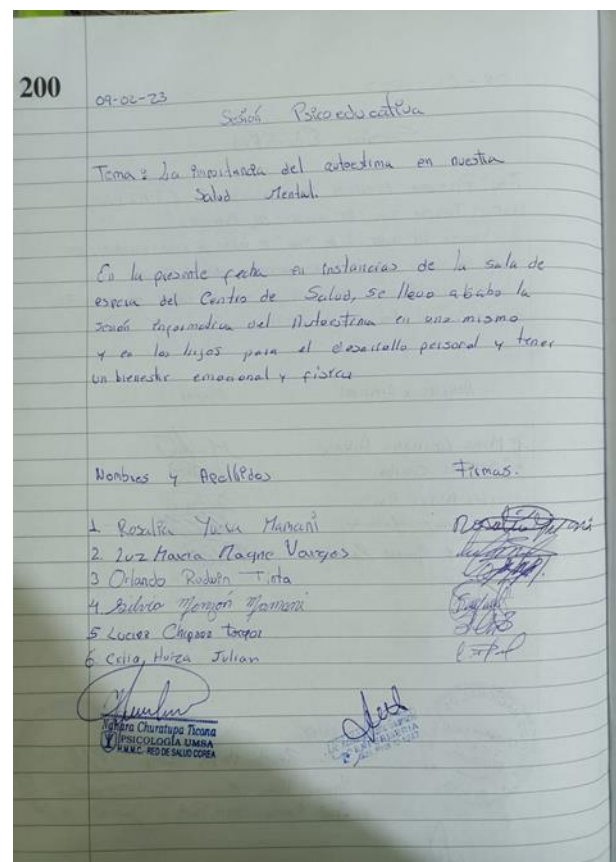 200
09-02-23
Sesión Psicoeducativa
Tema: La importancia del autoestima en nuestra
Salud Mental.
En la presente fecha en instancias de la sala de
espera del Centro de Salud, se llevo acabo la
sesión informativa del Autoestima en uno mismo
y en los hijos para el desarrollo personal y tener
un bienestar emocional y física
Nombres y Apellidos Firmas.
1 Rosalia Mamani
2. Luz Maria Magne Vargas
3 Orlando Tinta
4. Silvia Mamani
5
6. Celia Julian
Nahara Churatupa Ticona
PSICOLOGÍA UMSA
H.M.M.C. RED DE SALUD COREA